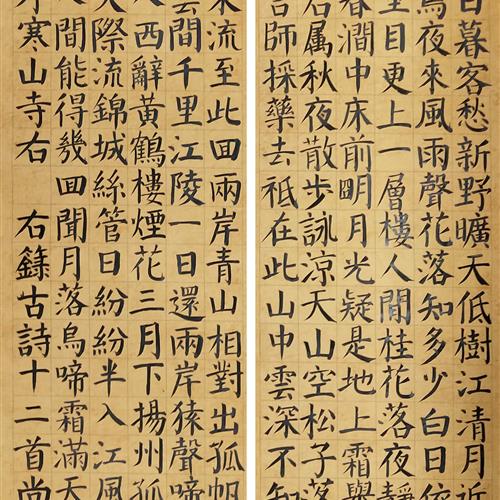 日暮客愁新野曠天低樹江清月近
鳥夜來風雨聲花落知多少白日依
里目更上一層樓人閒桂花落夜靜
春澗中床前明月光疑是地上霜舉
君屬秋夜散步詠涼天山空松子落
言師採藥去祗在此山中雲深不知
東流至此回兩岸青山相對出孤帆
雲間千里江陵一日還兩岸猿聲啼
人西辭黃鶴樓煙花三月下揚州孤
天際流錦城絲管日紛紛半入江風
人間能得幾回聞月落烏啼霜滿天
外寒山寺右 右錄古詩十二首尚